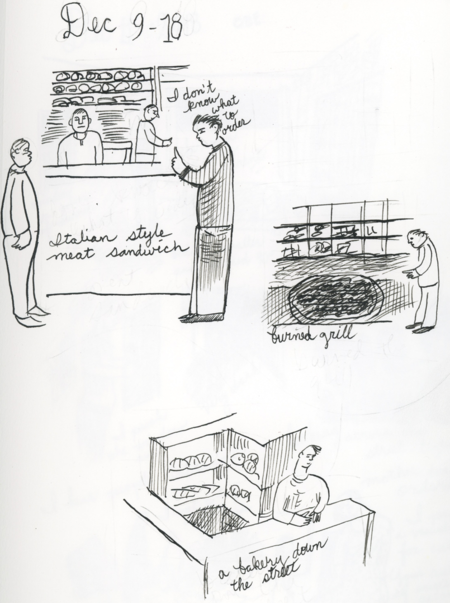 Dec 9-18
I don't
know
what
to
order
Italian style
meat sandwich
burned grill
a bakery down
the street